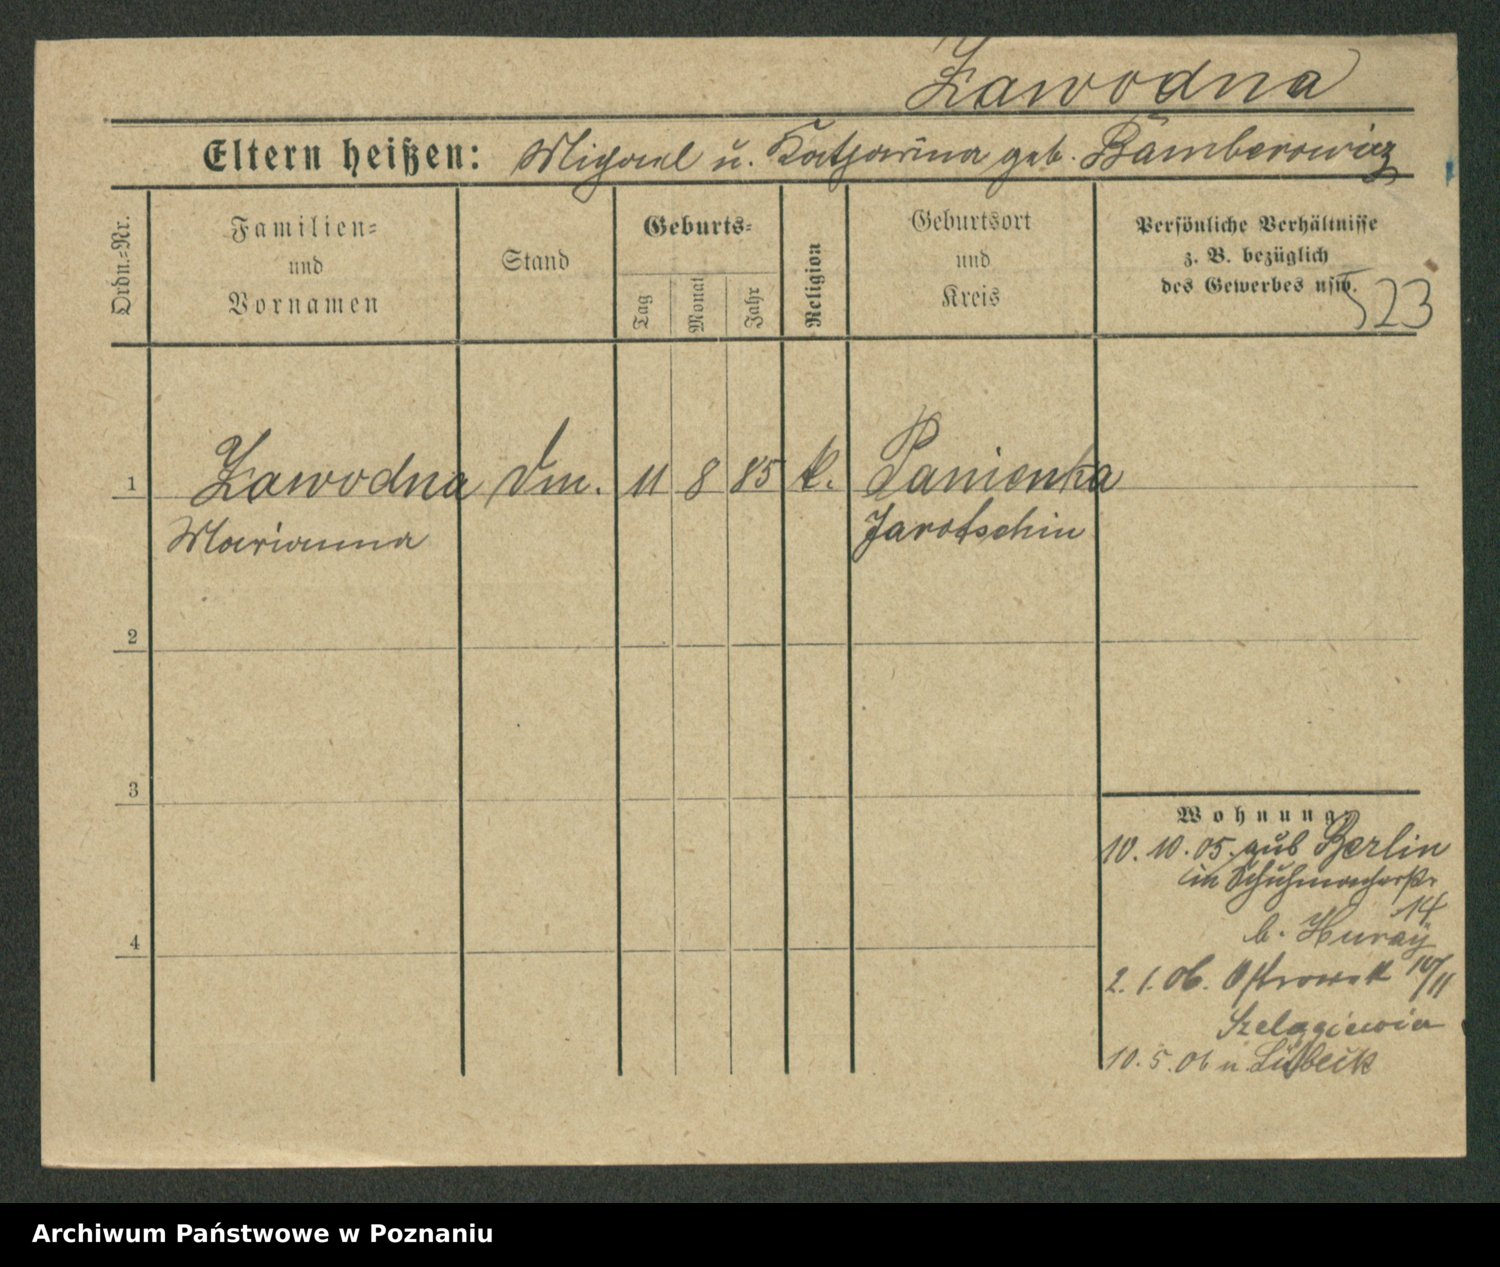 Zawodna
Eltern heißen: Michael u. Katharina geb. Bamberowicz
Ordn.-Nr.
Familien-
und
Vornamen
Stand
Geburts-
Tag
Monat
Jahr
Religion
Geburtsort
und
Kreis
Persönliche Verhältnisse
z. B. bezüglich
des Gewerbes usw.
523
1 Zawodna Dm. 11 8 85 k. Panienka
Marianna Jarotschin
2
3
4
Wohnung:
10. 10. 05. aus Berlin
in Schuhmacherstr
14
b. Huray
2. 1. 06. 10/11
10. 5. 06 n. Lübeck
Archiwum Państwowe w Poznaniu